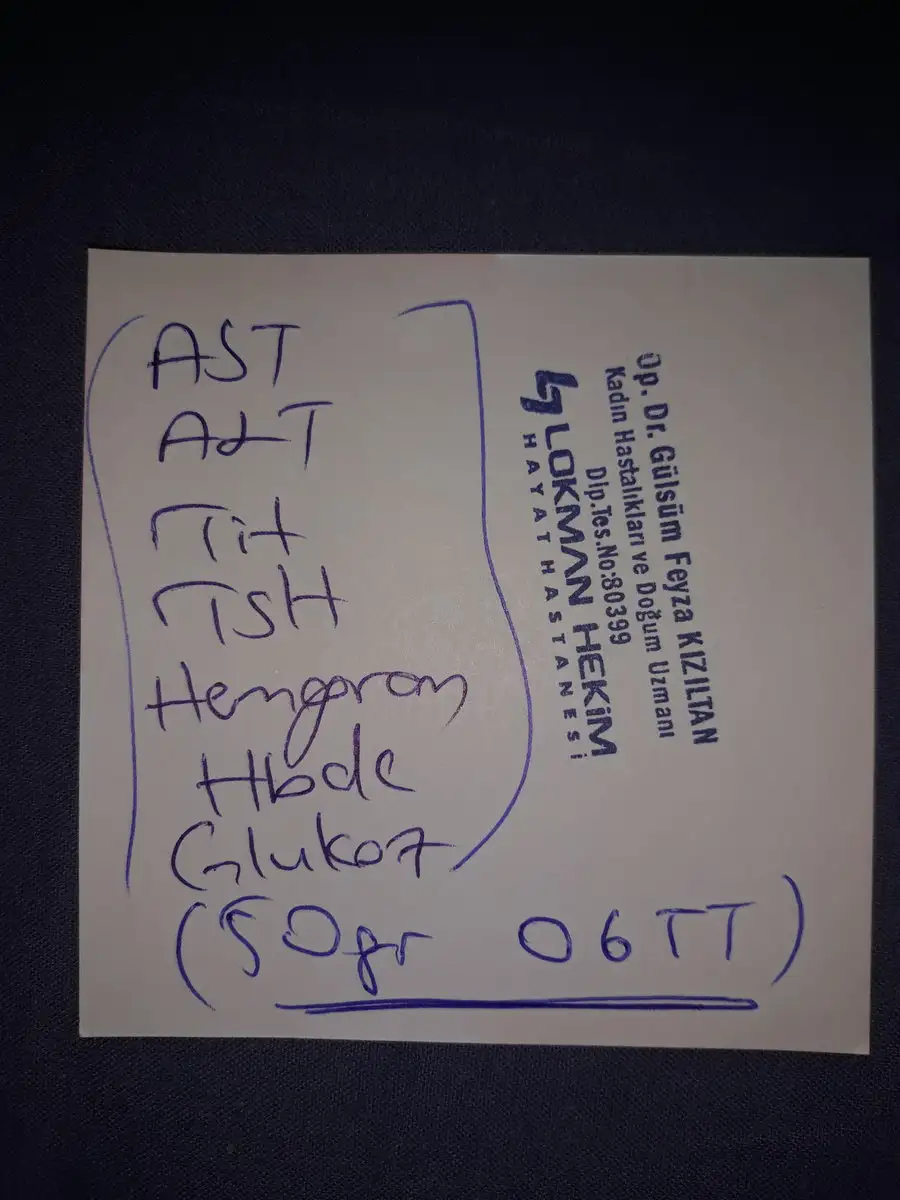 AST
ALT
TİT
TSH
Hemogram
HbA1c
Glukoz
(50gr OGTT)
Op. Dr. Gülsüm Feyza KIZILTAN
Kadın Hastalıkları ve Doğum Uzmanı
Dip.Tes.No:80399
LOKMAN HEKİM
HAYAT HASTANESİ